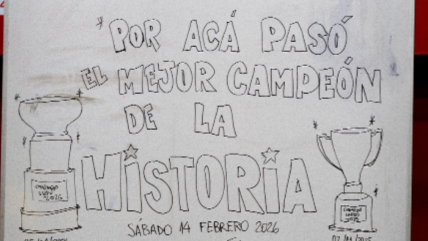 POR ACÁ PASÓ
EL MEJOR CAMPEÓN
DE LA
HISTORIA
SÁBADO 14 FEBRERO 2026